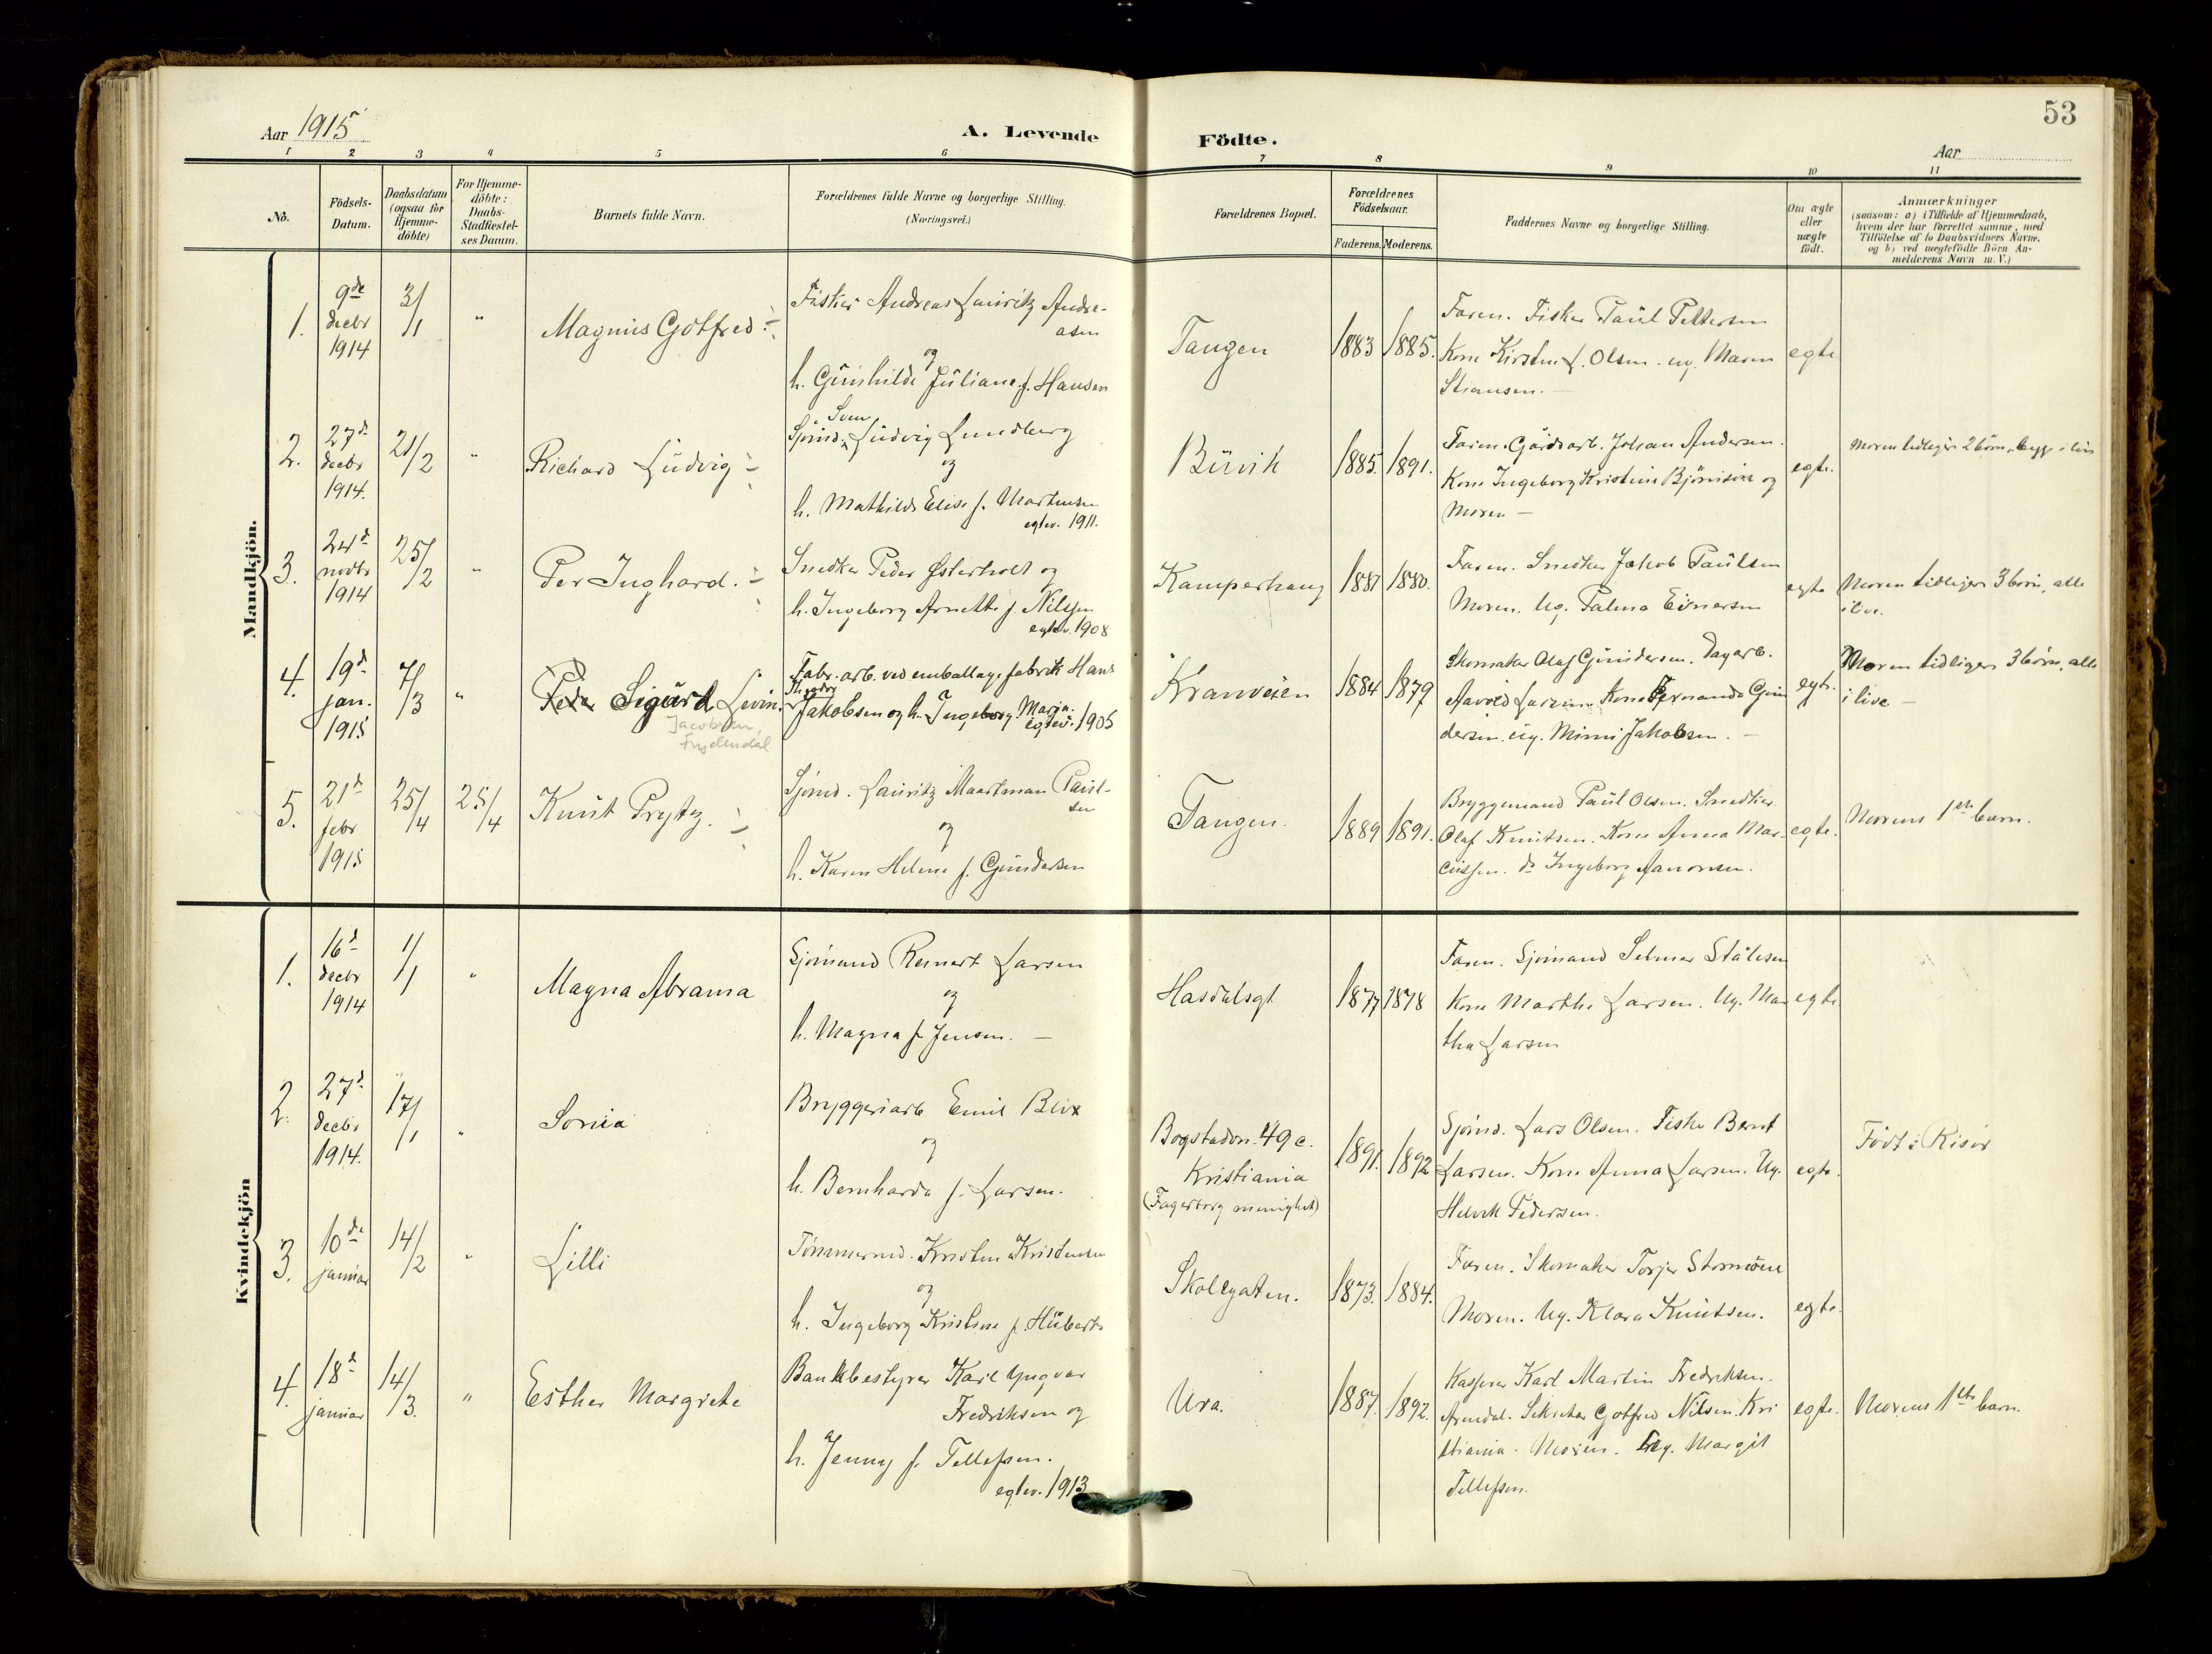 53
Aar 1915
A. Levende Födte.
Aar
1 2 3 4 5 6 7 8 9 10 11
No.
Födsels-
Datum.
Daabsdatum
(ogsaa for
Hjemme-
döbte)
For Hjemme-
döbte:
Daabs-
Stadfæstel-
ses Datum.
Barnets fulde Navn.
Forældrenes fulde Navne og borgerlige Stilling.
(Næringsvei.)
Forældrenes Bopæl.
Forældrenes
Födselsaar.
Faderens. Moderens.
Faddernes Navne og borgerlige Stilling.
Om ægte
eller
uægte
födt.
Anmærkninger
(saasom: a) i Tilfælde af Hjemmedaab,
hvem der har forrettet samme, med
Tilföielse af to Daabsvidners Navne,
og b) ved uægtefödte Börn An-
melderens Navn m. V.)
Mandkjön.
1.
9de
decbr
1914
3/1
"
Magnus Gotfred
Fisker Andreas Lauritz Andre-
asen
og
h. Gunhilde Juliane f. Hansen
Tangen
1883 1885.
Faren. Fisker Paul Pettersen
Kone Kirsten f. Olsen. ug. Maren
Stiansen.
egte
2.
27d
decbr
1914.
21/2
"
Richard Ludvig
Sven
Sjömd. Ludvig Lundberg
og
h. Mathilde Elise f. Martinsen
egtev. 1911.
Buvik
1885. 1891.
Faren. Gårdsarb. Johan Andersen.
Kone Ingeborg Kristine Björnsson og
Moren —
egte.
Moren tidligere 2 börn, begge i live
3.
24d
novbr
1914
25/2
"
Per Inghard.
Snedker Peder Østerholt og
h. Ingeborg Arnette f. Nilssen
egtev. 1908
Kamperhaug
1881 1880.
Faren. Snedker Jakob Paulsen
Moren. Ug. Palma Einersen
egte
Moren tidligere 3 börn, alle
i live.
4.
19d
jan.
1915
7/3
"
Peder Sigurd Levin.
Jacobsen
Frydendal
Fabr. arb. ved emballagefabrik Hans
Jakobsen og h. Ingeborg Marja.
egtev. 1905
Kranveien
1884 1879
Skomaker Olaf Gundersen. Dagarb.
Aavold Larsen. Kone Fernanda Gun
dersen. ug. Mimi Jakobsen. —
egte.
Moren tidligere 3 börn, alle
i live —
5.
21d
febr
1915
25/4
25/4
Knut Prytz.
Sjömd. Lauritz Maartman Paul-
sen
og
h. Karen Helene f. Gundersen
Tangen.
1889 1891.
Bryggemand Paul Olsen. Snedker
Olaf Knutsen. Kone Anna Mar-
cussen. do Ingeborg Aanonsen.
egte.
Morens 1ste barn.
Kvindekjön
1.
16d
decbr
1914
1/1
"
Magna Abrama
Sjömand Reinert Larsen
og
h. Magna f. Jensen. —
Hasdalsgt
1877 1878
Faren. Sjömand Selmer Stålesen
Kone Marthe Larsen. Ug. Mar
tha Larsen
egte
2.
27d
decbr
1914.
17/1
"
Sonia
Bryggeriarb. Emil Blix
og
h. Bernharda f. Larsen.
Bogstadvn. 49 c.
Kristiania
(Fagerborg menighet)
1891. 1892
Sjömd. Lars Olsen. Fisker Bernt
Larsen. Kone Anna Larsen. Ug.
Pedersen.
egte.
Födt i Risör
3.
10de
januar
14/2
"
Lilli
Tömmermd. Kristen Kristensen
og
h. Ingeborg Kristine f. Huberts
Skolegaten.
1873. 1884.
Faren. Skomaker Torjer
Moren. Ug. Klara Knutsen.
egte.
4.
18d
januar
14/3.
"
Esther Margrete
Bankbestyrer Karl Yngvar
Fredriksen og
h. Jenny f. Tellefsen.
egtev. 1913
Ura.
1887. 1892.
Kasserer Karl Martin Fredriksen.
Arendal. Sekretær Gotfred Nilsen. Kri
stiania. Moren. Ug. Margit
Tellefsen.
egte.
Morens 1ste barn.